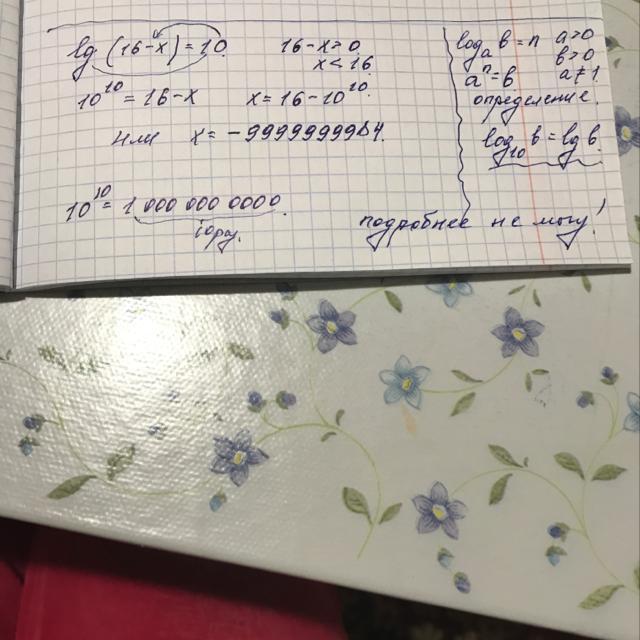 lg (16-x) = 10. 16-x>0
x<16
10¹⁰ = 16-x x = 16-10¹⁰.
или x = -9999999984.
10¹⁰ = 1 000 000 0000.
10раз.
logₐ b = n a>0
b>0
aⁿ = b a≠1
определение.
log₁₀ b = lg b.
подробнее не могу!